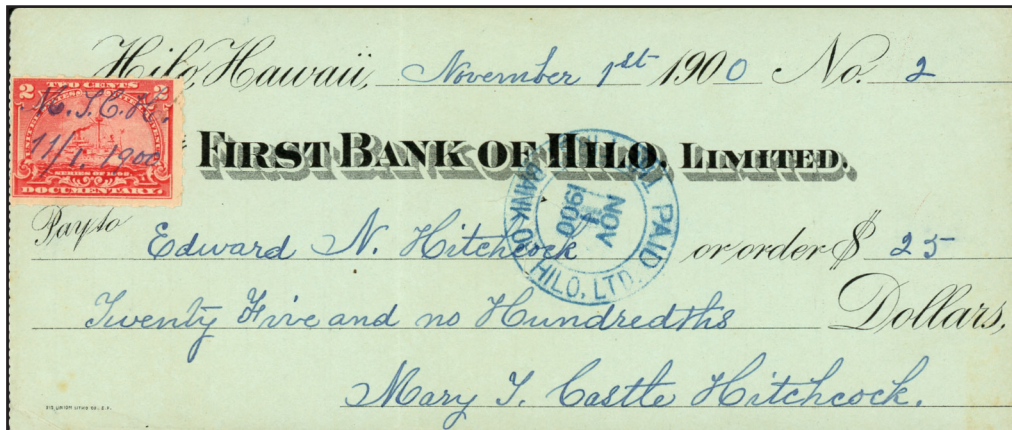 Hilo, Hawaii, November 1st 1900 No. 2
2 TWO CENTS 2
11/1. 1900
SERIES OF 1898
DOCUMENTARY.
FIRST BANK OF HILO, LIMITED.
PAID
NOV
1
1900
BANK OF HILO, LTD.
Pay to Edward N. Hitchcock or order $ 25
Twenty Five and no Hundredths Dollars,
Mary T. Castle Hitchcock.